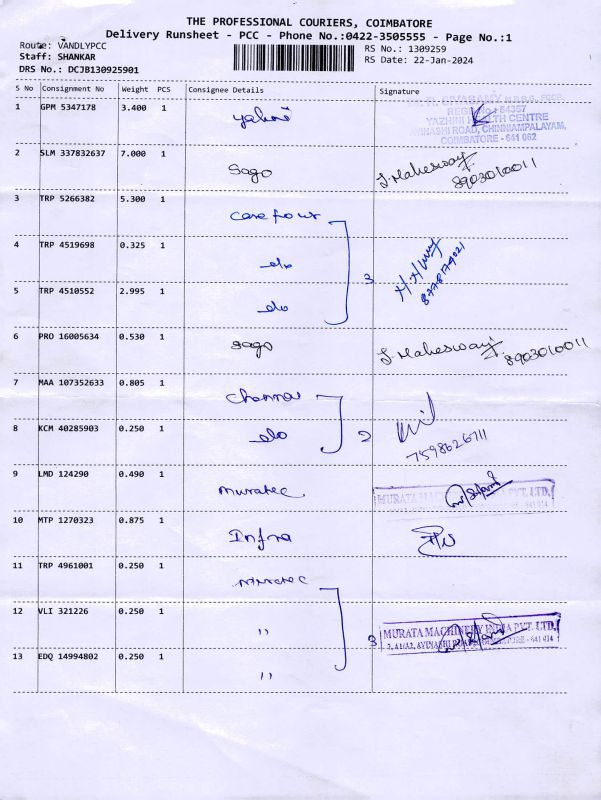 THE PROFESSIONAL COURIERS, COIMBATORE
Delivery Runsheet - PCC - Phone No.:0422-3505555 - Page No.:1
Route: VANDLYPCC
RS No.: 1309259
Staff: SHANKAR
RS Date: 22-Jan-2024
DRS No.: DCJB130925901
S No Consignment No Weight PCS Consignee Details Signature
1 GPM 5347178 3.400 1
YAZHINI HEALTH CENTRE
AVINASHI ROAD, CHINNIAMPALAYAM,
COIMBATORE - 641 062
2 SLM 337832637 7.000 1 Sago J. Maheswari
8903010011
3 TRP 5266382 5.300 1 Carefour
4 TRP 4519698 0.325 1 do 3
8778179021
5 TRP 4510552 2.995 1 do
6 PRO 16005634 0.530 1 Sago J. Maheswari
8903010011
7 MAA 107352633 0.805 1 Chennai
8 KCM 40285903 0.250 1 do 2
7598626711
9 LMD 124290 0.490 1 muratec
MURATA MACHINERY INDIA PVT. LTD.,
10 MTP 1270323 0.875 1 Infra
11 TRP 4961001 0.250 1 muratec
12 VLI 321226 0.250 1 " 3
MURATA MACHINERY INDIA PVT. LTD.,
13 EDQ 14994802 0.250 1 "